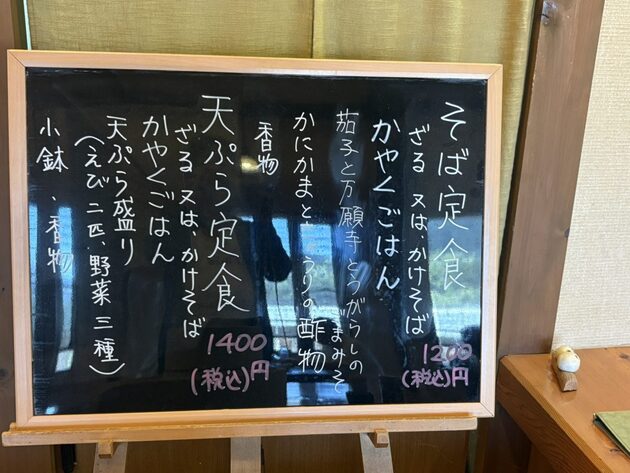 そば定食
ざる 又は かけそば
かやくごはん
茄子と万願寺とうがらしの
ごまみそ
かにかまときゅうりの酢物
香物
1200
(税込)円
天ぷら定食
ざる 又は かけそば
かやくごはん
天ぷら盛り
(えび二匹、野菜三種)
小鉢、香物
1400
(税込)円